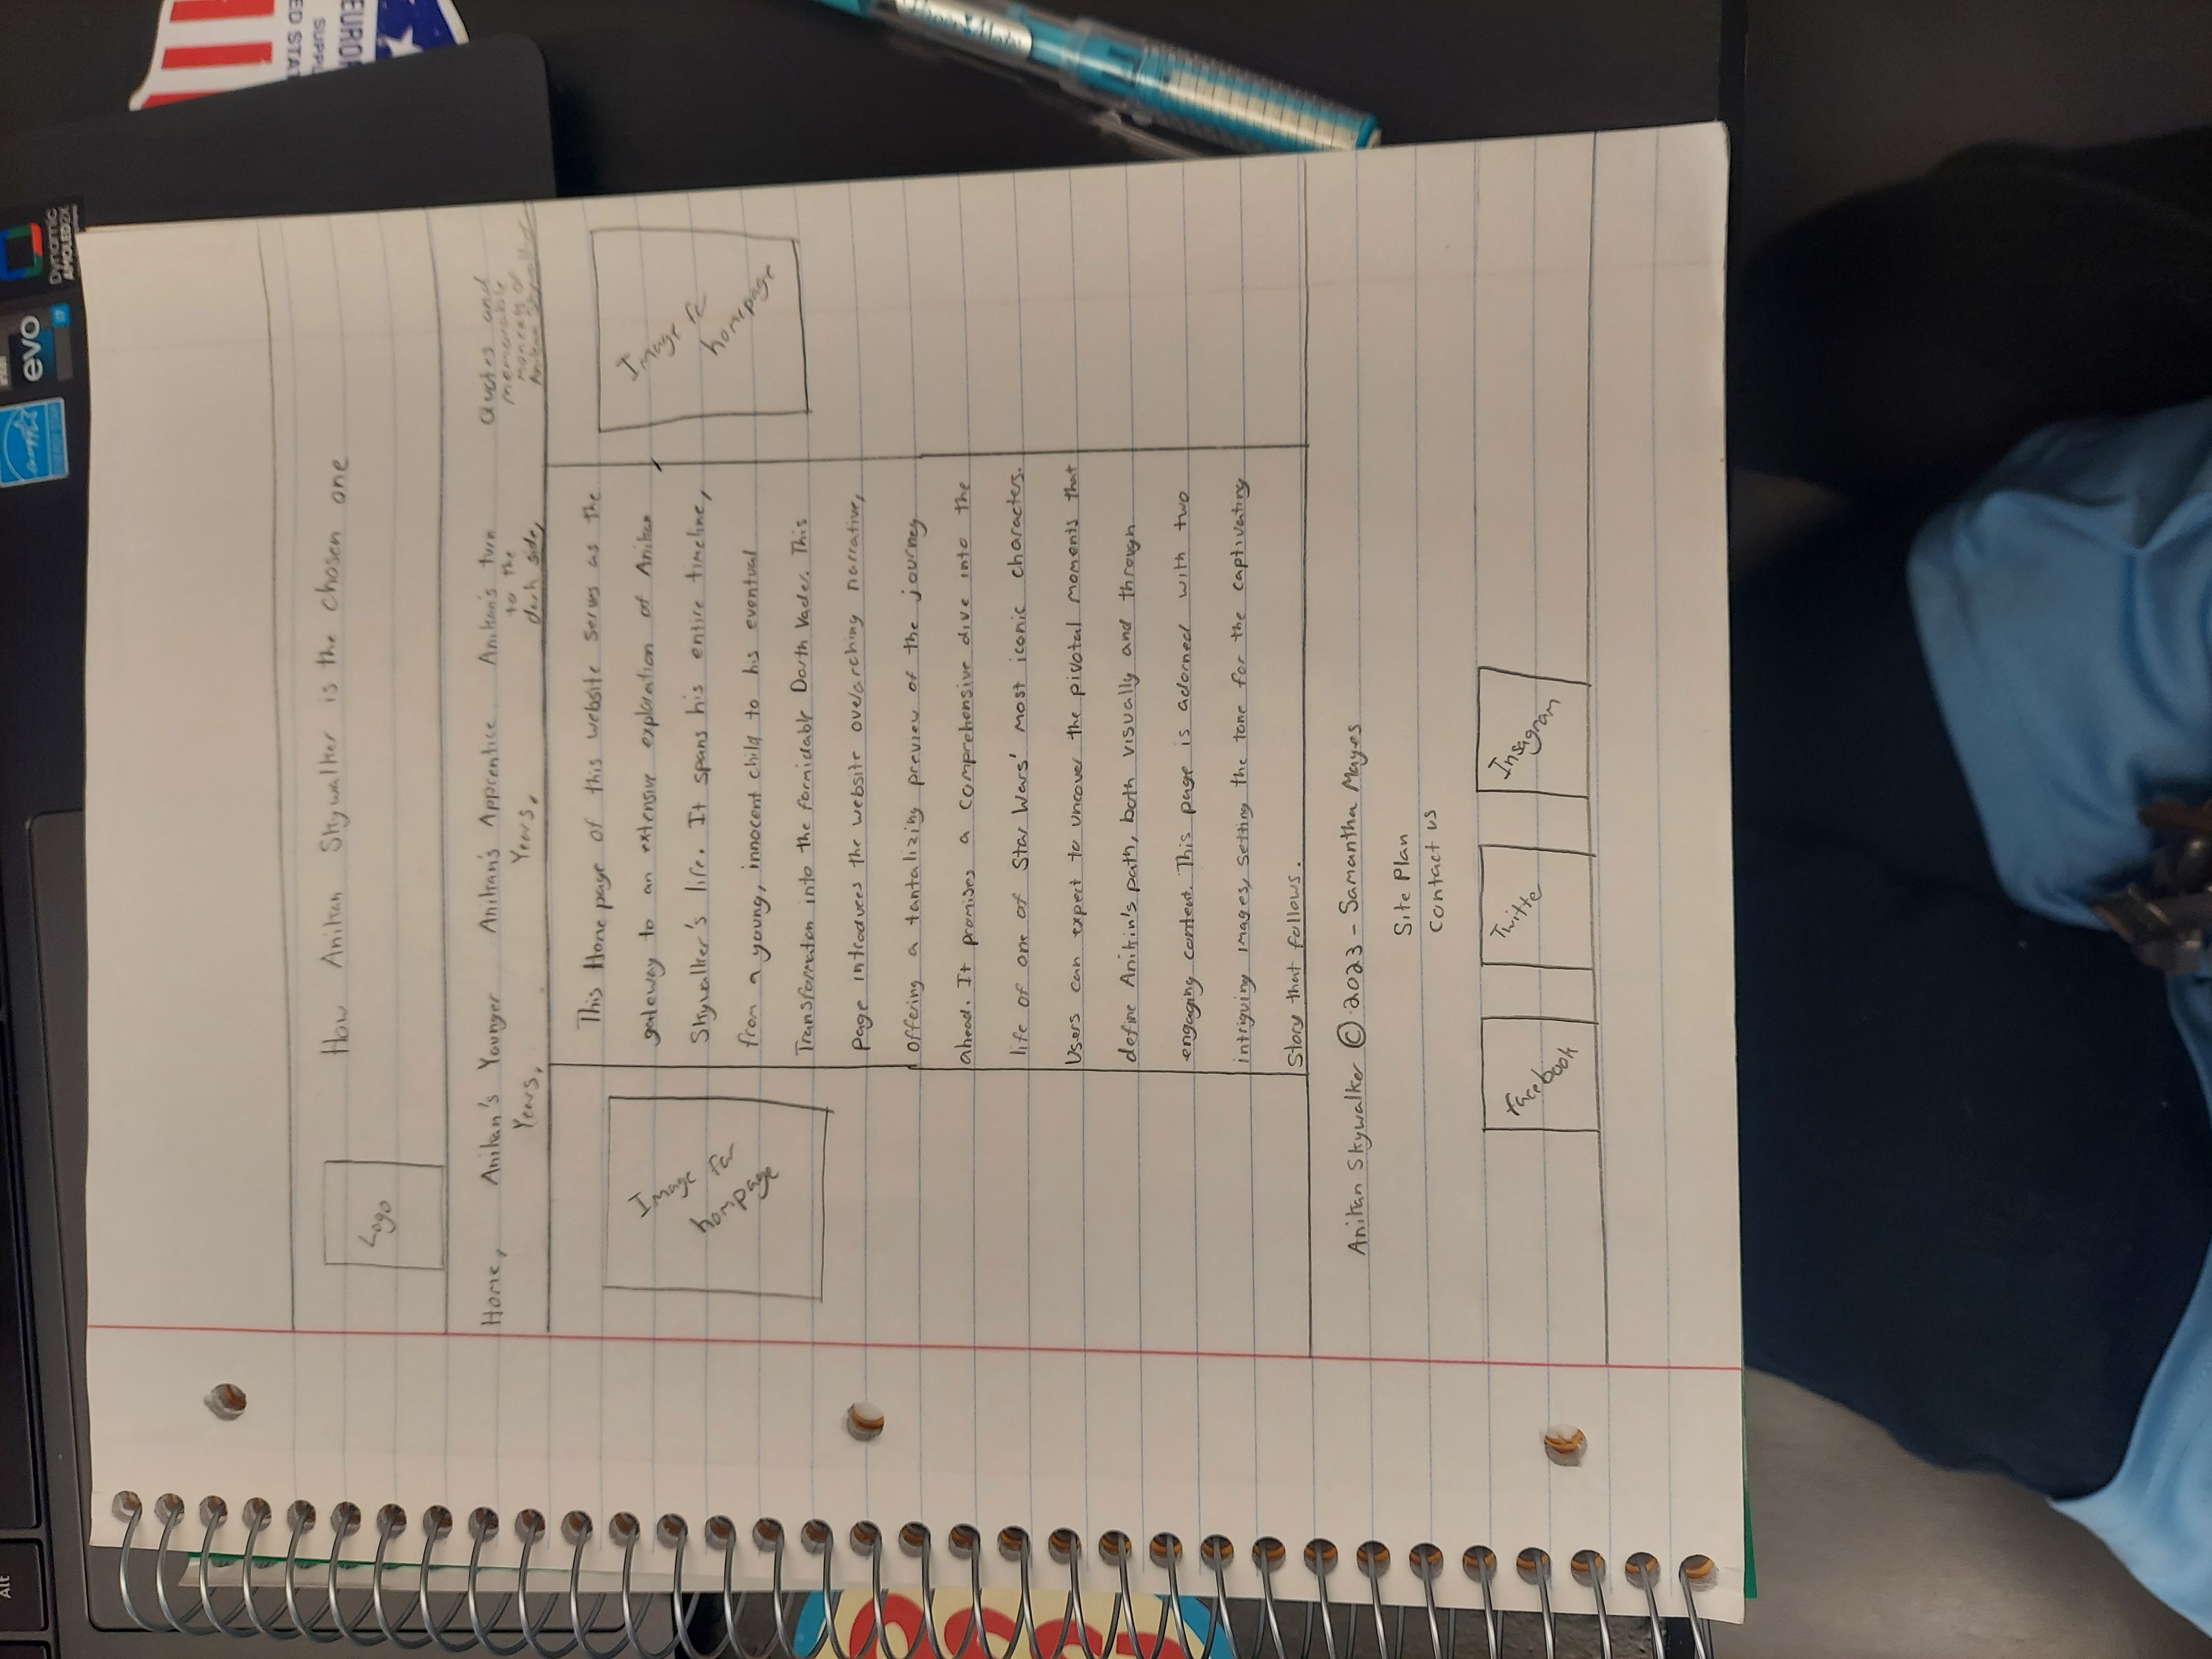 Alt
evo
Dynamic
AMOLED2X
How Anikan Skywalker is the chosen one
Logo
Home, Anikan's Younger Years, Anikan's Apprentice Years, Anikan's turn to the dark side, Quotes and memorable moments of Anikan Skywalker
Image for
hompage
This Home page of this website serves as the
gateway to an extensive exploration of Anikan
Skywalker's life. It spans his entire timeline,
from a young, innocent child to his eventual
Transformaton into the formidable Darth Vader. This
page introduces the website overarching narrative,
offering a tantalizing preview of the journey
ahead. It promises a comprehensive dive into the
life of one of Star Wars' most iconic characters.
Users can expect to uncover the pivotal moments that
define Anikin's path, both visually and through
engaging content. This page is adorned with two
intriguing images, setting the tone for the captivating
Story that follows.
Image fo
homepage
Anikan Skywalker © 2023 - Samantha Mayes
Site Plan
Contact us
facebook
Twitte
Insagram